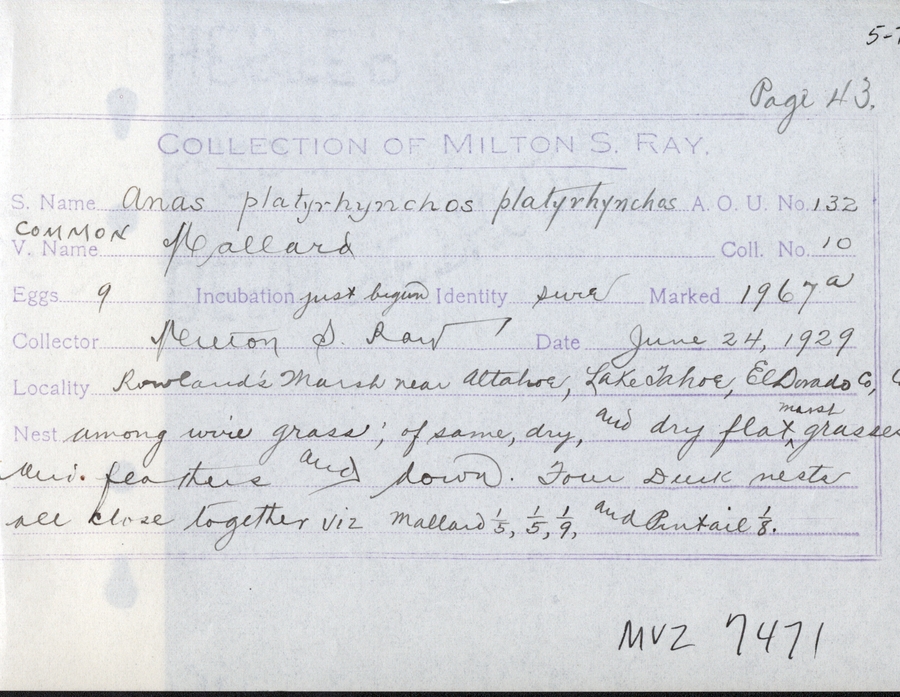 5-
Page 43.
COLLECTION OF MILTON S. RAY.
S. Name Anas platyrhynchos platyrhynchos A. O. U. No. 132
COMMON
V. Name Mallard Coll. No. 10
Eggs 9 Incubation just begun Identity sure Marked 1967a
Collector Milton S. Ray Date June 24, 1929
Locality Rowland's Marsh near Altahoe, Lake Tahoe, El Dorado Co,
Nest among wire grass; of same, dry, and dry flat marsh grasses
feathers and down. Four Duck nests
all close together viz Mallard 1/5, 1/5, 1/9, and Pintail 1/8.
MVZ 7471